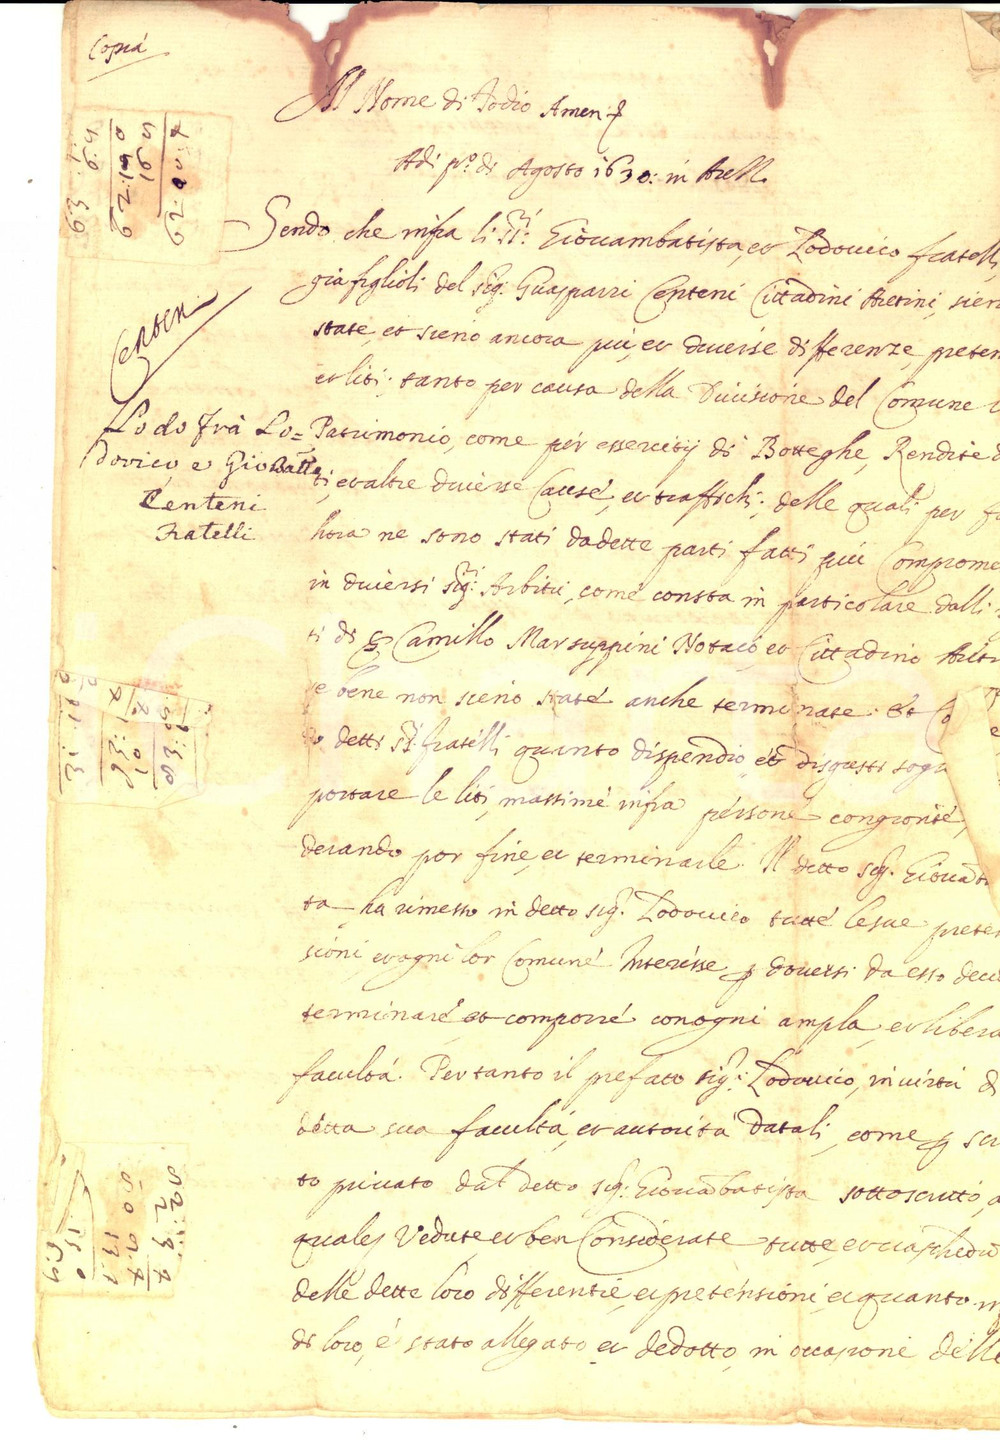 Copia
Al Nome di Dio Amen
Adi p.º di Agosto 1630: in Arezz.
Centeni
Lodo frà Lo=
dovico, e Gio: Batta
Centeni
Fratelli
Sendo che infra li SS.ri Giovambatista, et Lodovico fratelli,
gia figlioli del sig. Guasparri Centeni Cittadini Aretini, sien
state, et sieno ancora più, et diverse differenze, preten
et liti; tanto per causa della Divisione del Comune
Patrimonio, come per essercitij di Botteghe, Rendite d
ti, et altre diverse Cause, et traffichi; delle quali per fi
hora ne sono stati da dette parti fatti più Comprome
in diversi sig.ri Arbitri, come consta in particolare dalli
ti di S. Camillo Marsuppini Notaio, et Cittadino Areti
se bene non sieno state anche terminate. Et Co
do detti SS.ri fratelli quanto dispendio et disgusti sogl
portare le liti, massime infra persone congionte,
derando por fine, et terminarle. Il detto sig. Giovanb
ta ha rimesso in detto sig. Lodovico tutte le sue preten
sioni, et ogni lor Comune Interesse p doversi da esso deci
terminare et comporre con ogni ampla, et libera
facultà. Per tanto il prefato sig. Lodovico, in virtù di
detta sua facultà, et autorità datali, come p scri
to privato dal detto sig. Giovanbatista sottoscritto, a
quale, Vedute et ben Considerate tutte, et ciaschedu
delle dette loro differentie, et pretensioni, et quanto
di loro, è stato allegato et dedotto, in occasione delle